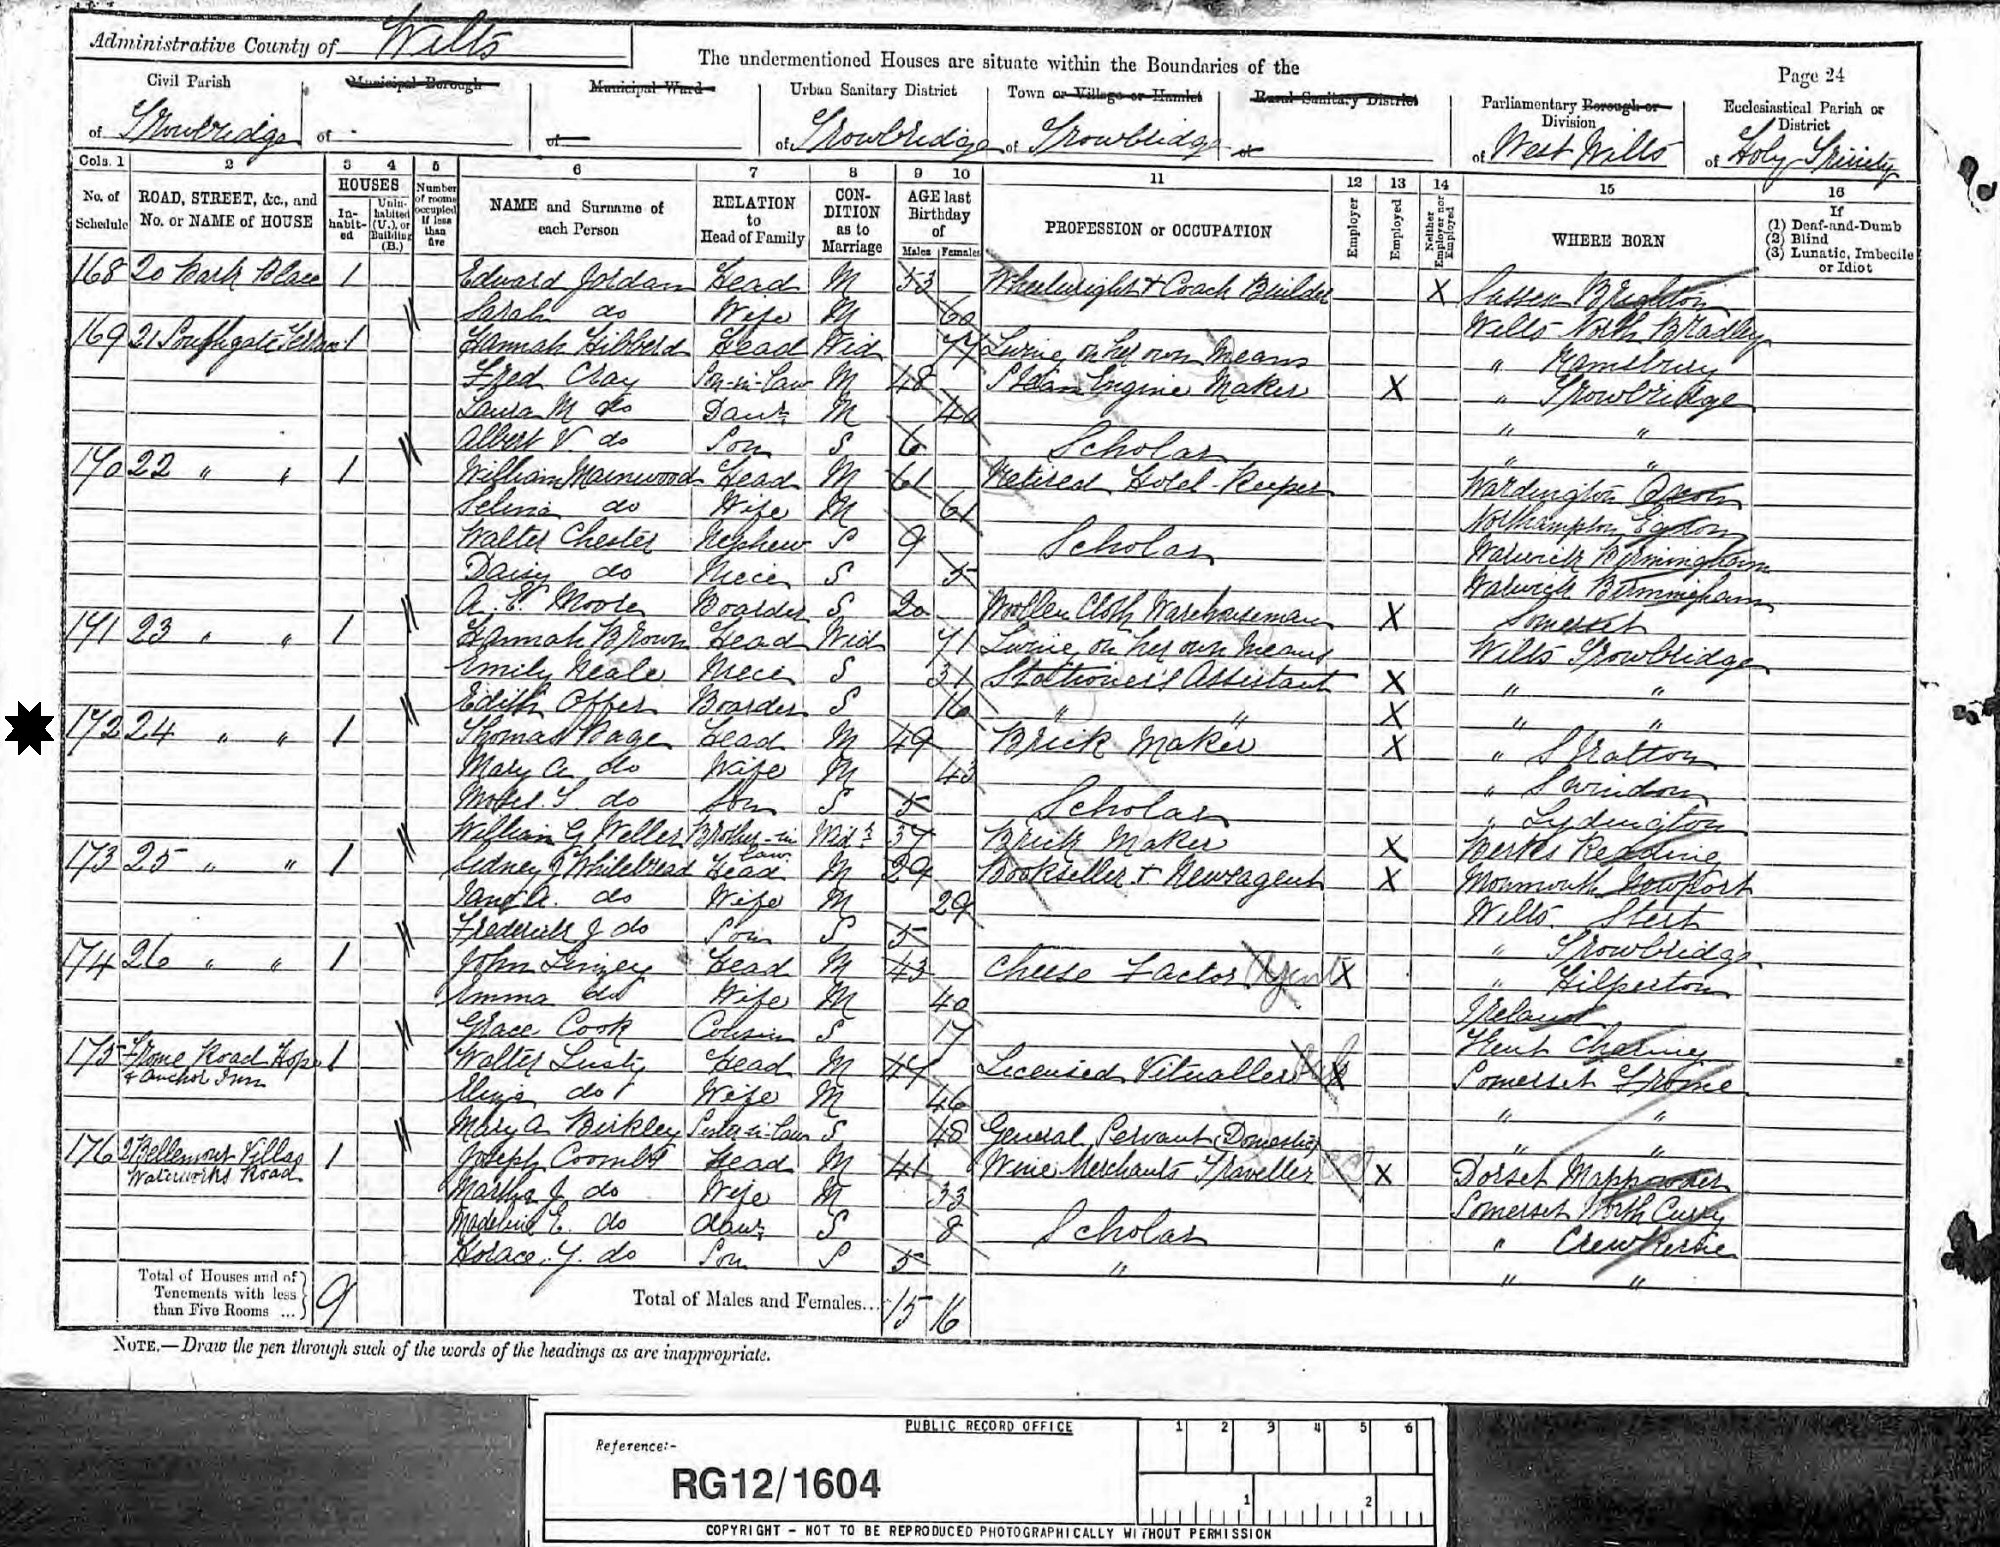 Administrative County of Wilts
The undermentioned Houses are situate within the Boundaries of the
Page 24
Civil Parish of Trowbridge
Municipal Borough of
Municipal Ward of
Urban Sanitary District of Trowbridge
Town or Village or Hamlet of Trowbridge
Rural Sanitary District of
Parliamentary Borough or Division of West Wilts
Ecclesiastical Parish or District of Holy Trinity
Cols. 1 2 3 4 5 6 7 8 9 10 11 12 13 14 15 16
No. of Schedule
ROAD, STREET, &c., and No. or NAME of HOUSE
HOUSES
In-habit-ed
Unin-habited (U.), or Building (B.)
Number of rooms occupied if less than five
NAME and Surname of each Person
RELATION to Head of Family
CON-DITION as to Marriage
AGE last Birthday of
Males Females
PROFESSION or OCCUPATION
Employer
Employed
Neither Employer nor Employed
WHERE BORN
If
(1) Deaf-and-Dumb
(2) Blind
(3) Lunatic, Imbecile or Idiot
168 20 Park Place 1 Edward Jordan Head M 53 Wheelwright & Coach Builder X Sussex Brighton
Sarah do Wife M 60 Wilts North Bradley
169 21 Southgate Terrace 1 Hannah Hibberd Head Wid 77 Living on her own Means " Ramsbury
Fred Cray Son-in-Law M 48 Steam Engine Maker X " Trowbridge
Laura M do Daur M 40 " "
Albert V. do Son S 6 Scholar " "
170 22 " " 1 William Mainwood Head M 61 Retired Hotel-Keeper Wardington Oxon
Selina do Wife M 61 Northampton
Walter Chester Nephew S 9 Scholar Warwick Birmingham
Daisy do Niece S 5 Warwick Birmingham
A. E. Moore Boarder S 20 Woollen Cloth Warehouseman X Somerset
171 23 " " 1 Hannah Brown Head Wid 71 Living on her own Means Wilts Trowbridge
Emily Neale Niece S 31 Stationer's Assistant X " "
Edith Offer Boarder S 16 " " X " "
172 24 " " 1 Thomas Page Head M 49 Brick Maker X " Stratton
Mary A do Wife M 43 " Swindon
Moses T. do Son S 5 Scholar " Lydington
William G Weller Brother-in Law Widr 37 Brick Maker X Berks Reading
173 25 " " 1 Sidney J Whitebread Head M 29 Bookseller & Newsagent X Monmouth Newport
Jane A. do Wife M 29 Wilts Stert
Frederick J do Son S 5 " Trowbridge
174 26 " " 1 John Linzey Head M 43 Cheese Factor Agent X " Hilperton
Emma do Wife M 40 Ireland
Grace Cook Cousin S 17 Kent Charing
175 Frome Road Hope & Anchor Inn 1 Walter Lusty Head M 47 Licensed Vitualler X Somerset Frome
Eliza do Wife M 46 " "
Mary A Birkley Sister-in-Law S 48 General Servant (Domestic) " "
176 2 Bellemont Villas Waterworks Road 1 Joseph Coombs Head M 41 Wine Merchants Traveller X Dorset Mappowder
Martha J. do Wife M 33 Somerset North Curry
Madeline E. do daur S 8 Scholar " Crewkerne
Horace. J. do Son S 5 " " "
Total of Houses and of Tenements with less than Five Rooms ... 9
Total of Males and Females... 15 16
NOTE.—Draw the pen through such of the words of the headings as are inappropriate.
PUBLIC RECORD OFFICE
1 2 3 4 5 6
Reference:-
RG12/1604
1 2
COPYRIGHT - NOT TO BE REPRODUCED PHOTOGRAPHICALLY WITHOUT PERMISSION